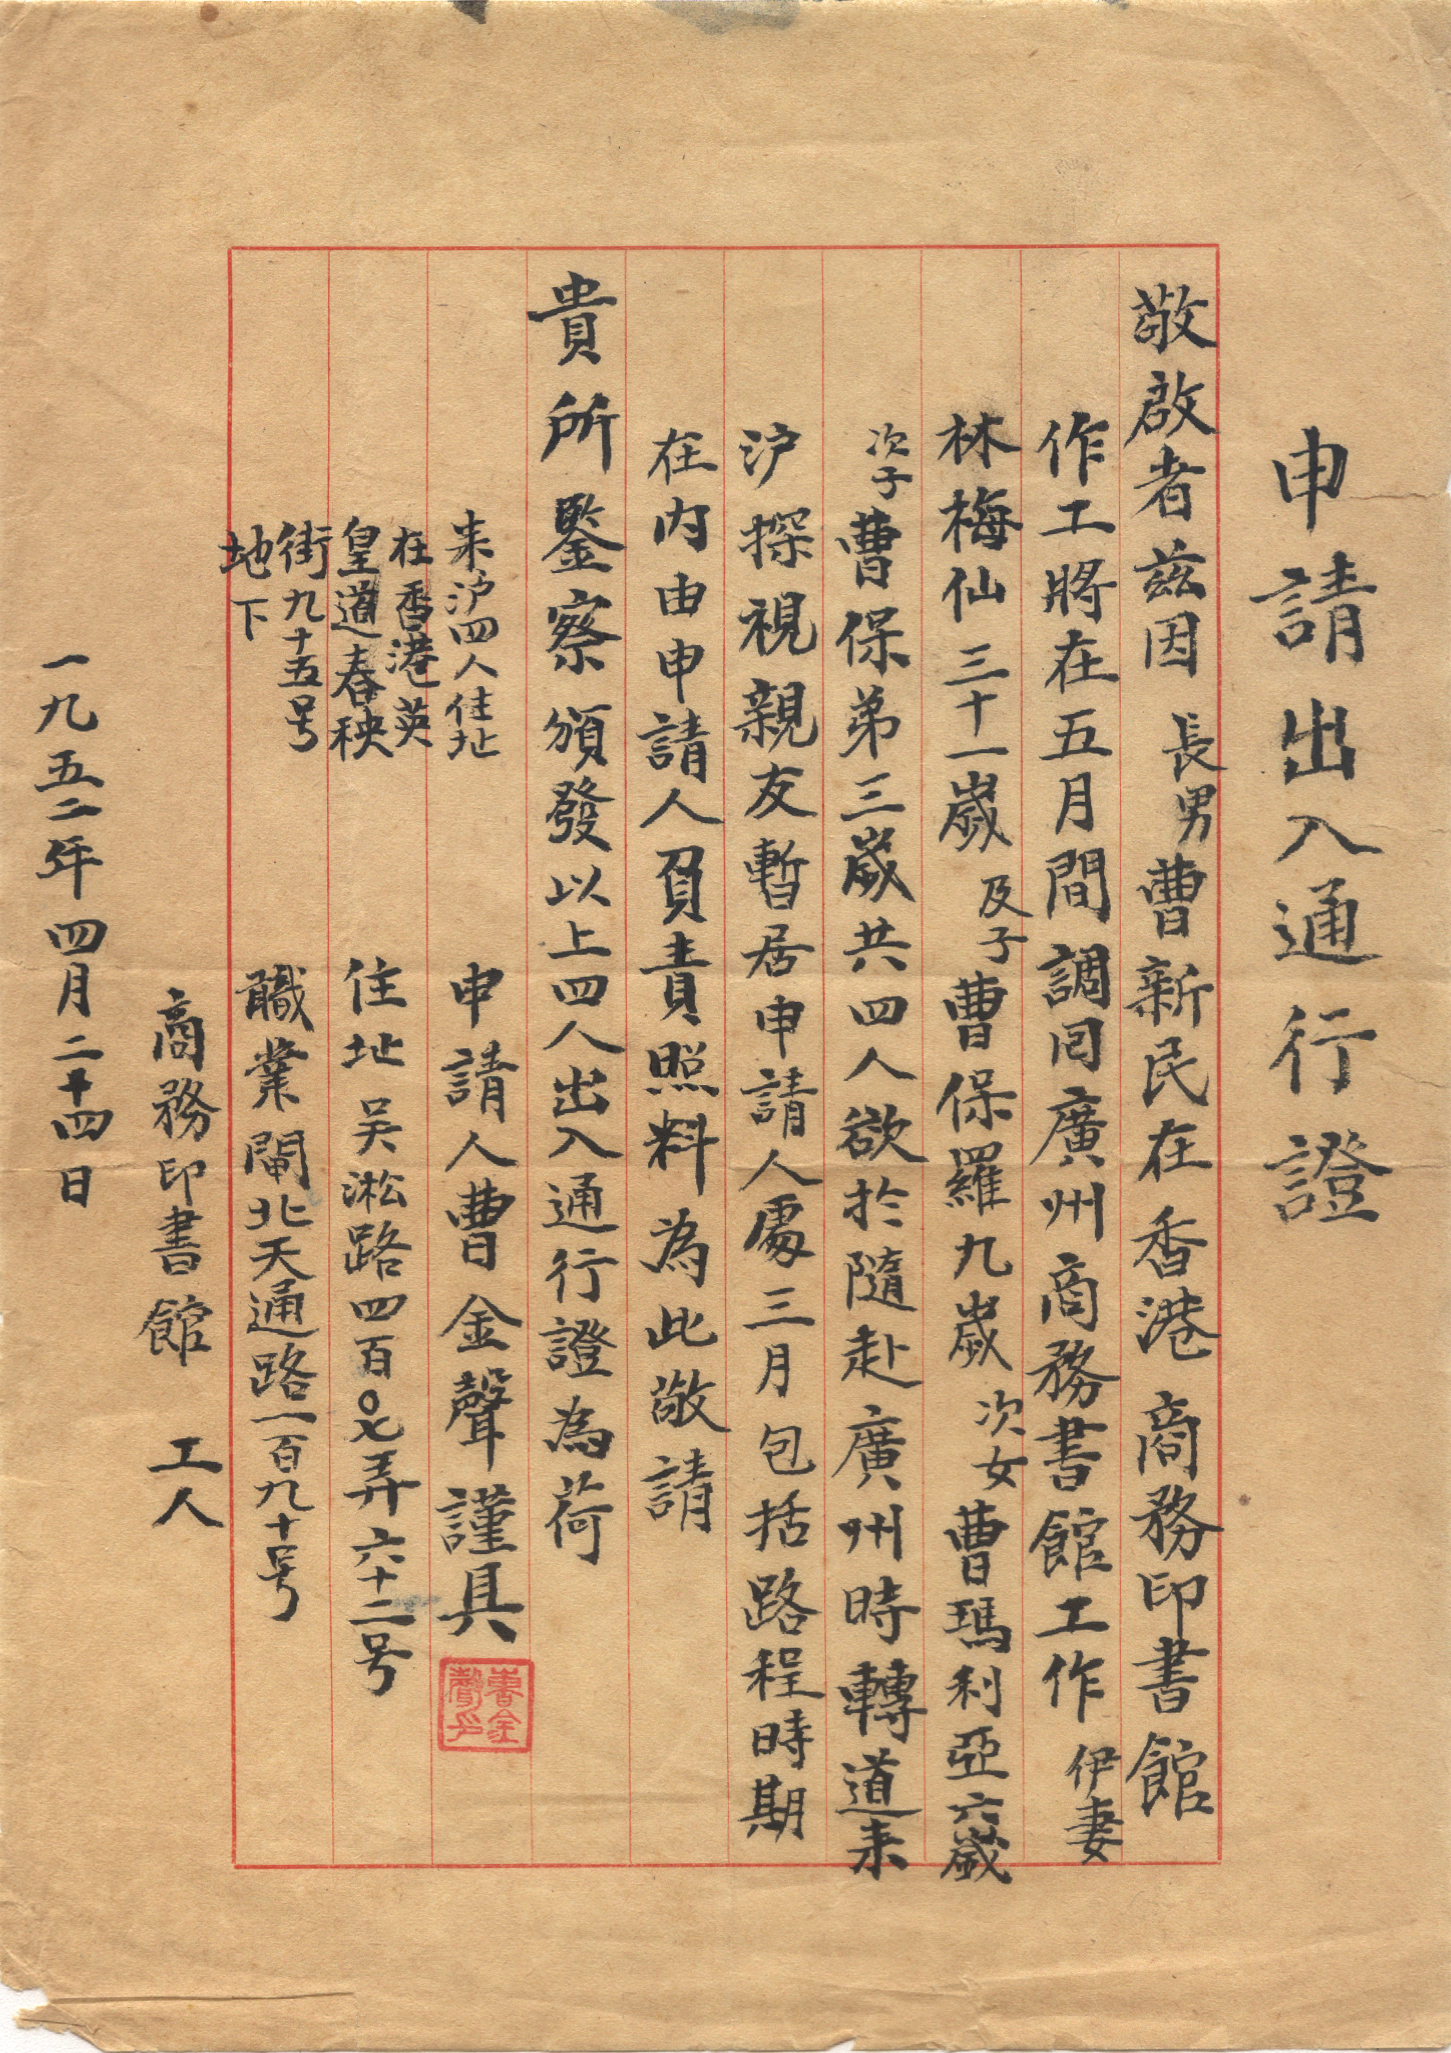 申請出入通行證
敬啟者茲因長男曹新民在香港商務印書館
作工將在五月間調回廣州商務書館工作伊妻
林梅仙三十一歲及子曹保羅九歲次女曹瑪利亞六歲
次子曹保弟三歲共四人欲於隨赴廣州時轉道来
沪探視親友暫居申請人處三月包括路程時期
在内由申請人負責照料為此敬請
貴所鑒察頒發以上四人出入通行證為荷
来沪四人住址
在香港英
皇道春秧
街九十五号
地下
申請人曹金聲謹具
曹金聲印
住址吴淞路四百〇七弄六十二号
職業閘北天通路一百九十号
商務印書館 工人
一九五二年四月二十四日